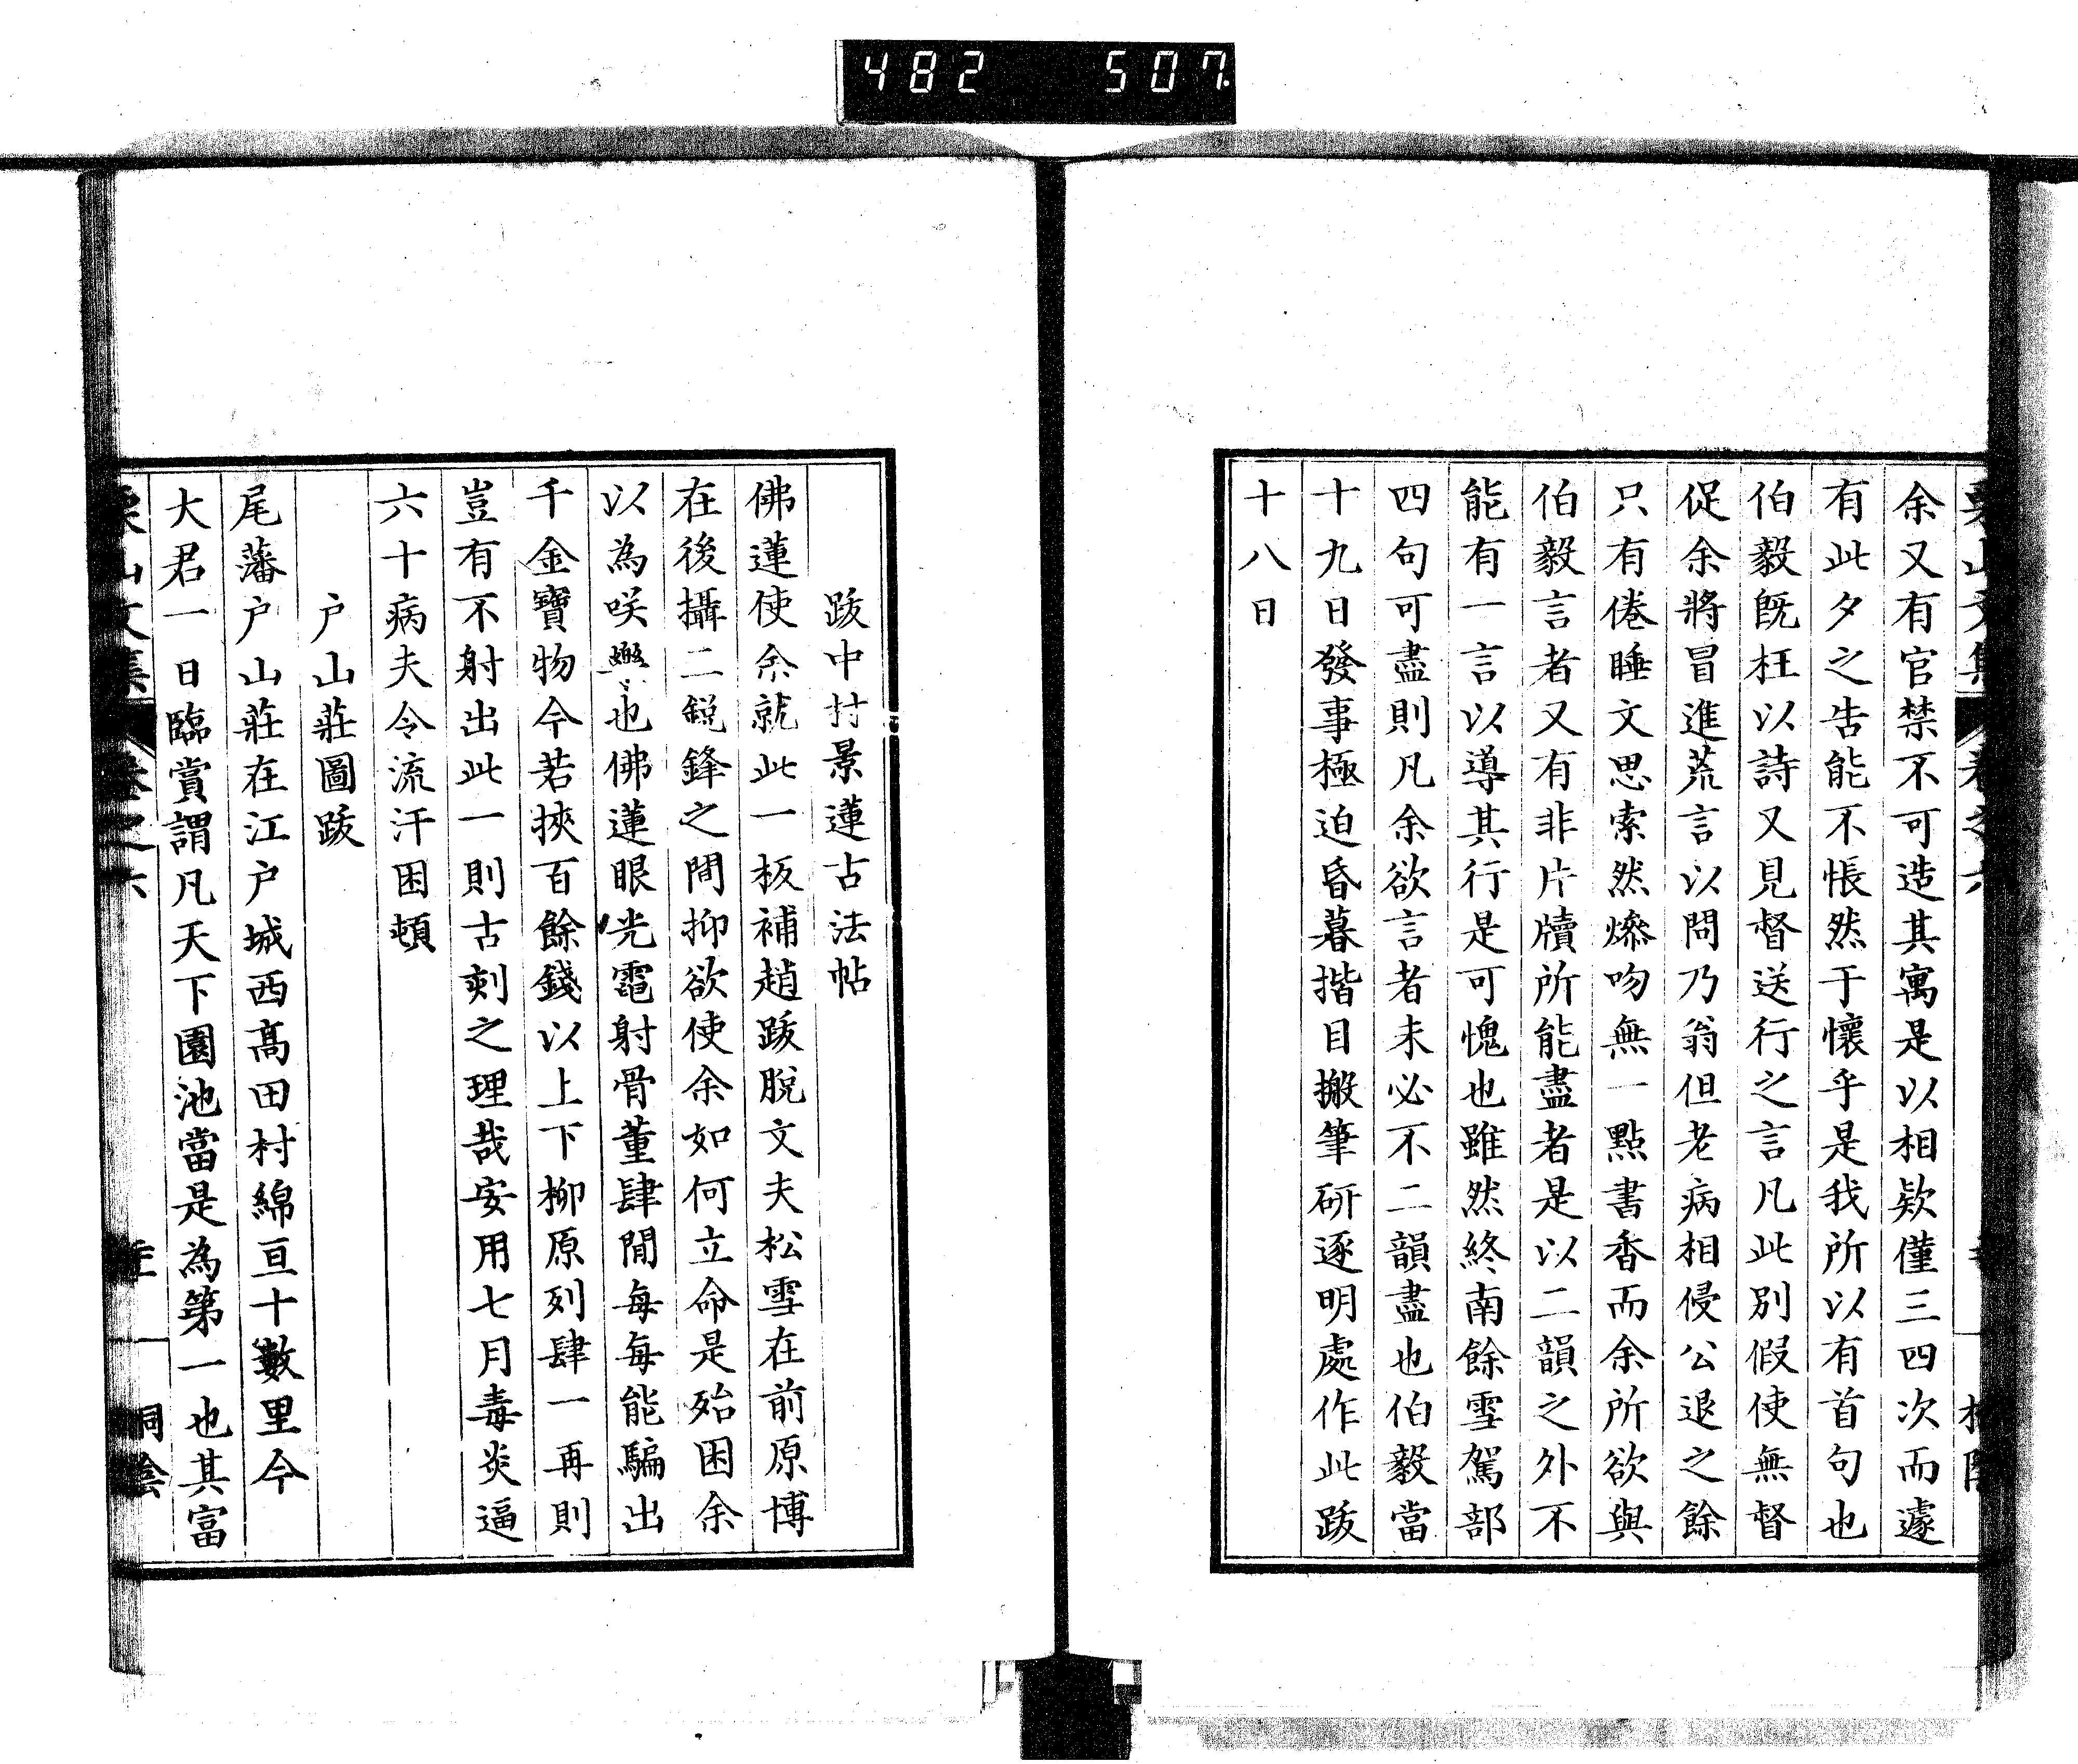 482 507
余又有官禁不可造其寓是以相欵僅三四次而遽
有此夕之告能不悵然于懷乎是我所以有首句也
伯毅既枉以詩又見督送行之言凡此別假使無督
促余將冒進荒言以問乃翁但老病相侵公退之餘
只有倦睡文思索然燥吻無一點書香而余所欲與
伯毅言者又有非片牘所能盡者是以二韻之外不
能有一言以導其行是可愧也雖然終南餘雪駕部
四句可盡則凡余欲言者未必不二韻盡也伯毅當
十九日發事極迫昏暮揩目搬筆研逐明處作此跋
十八日
跋中村景蓮古法帖
佛蓮使余就此一板補趙跋脫文夫松雪在前原博
在後攝二銳鋒之間抑欲使余如何立命是殆困余
以為咲樂也佛蓮眼光電射骨董肆間每每能騙出
千金寶物今若挾百餘錢以上下柳原列肆一再則
豈有不射出此一則古刻之理哉安用七月毒炎逼
六十病夫令流汗困頓
戶山莊圖跋
尾藩戶山莊在江戶城西高田村綿亘十數里今
大君一日臨賞謂凡天下園池當是為第一也其富
栗山文集 卷之六